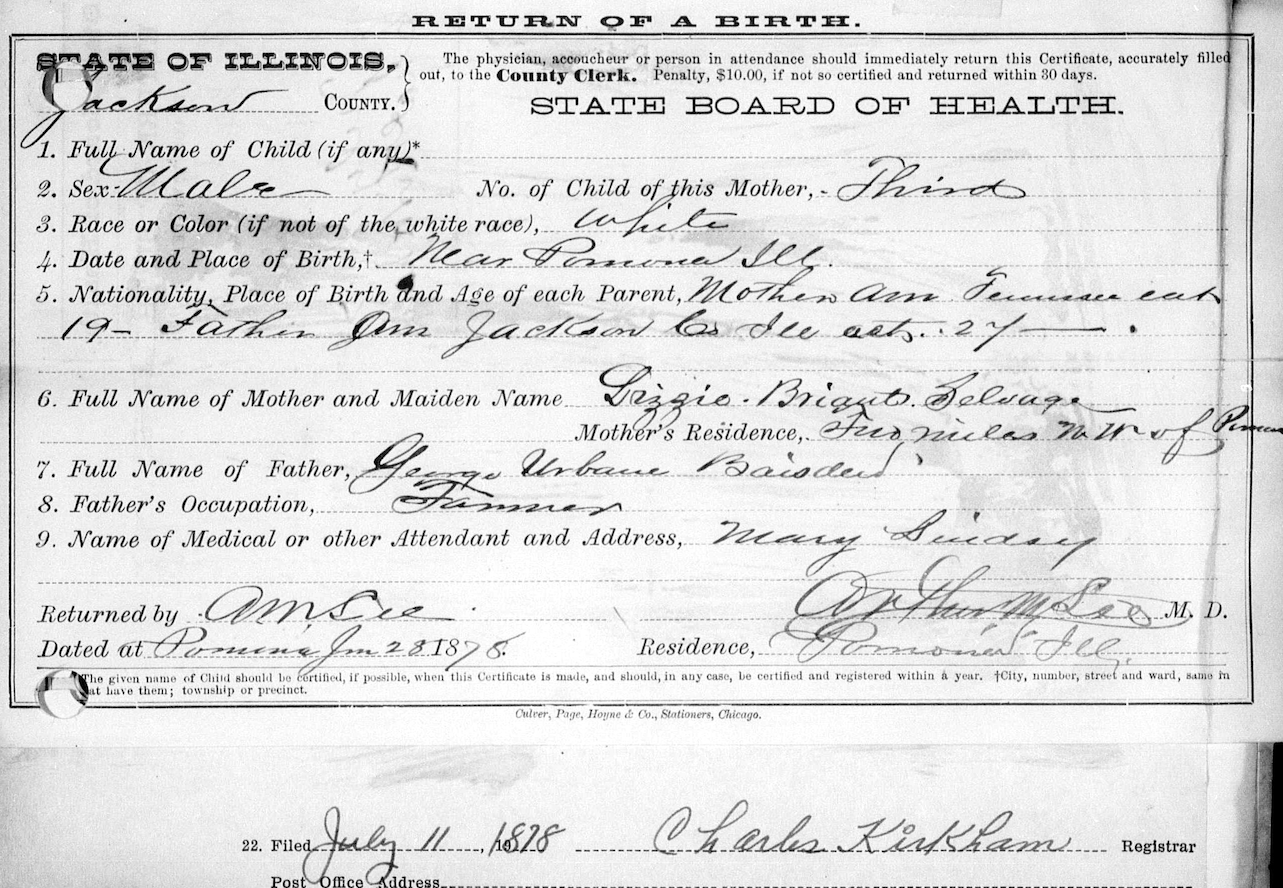 RETURN OF A BIRTH.
STATE OF ILLINOIS,
Jackson COUNTY.
The physician, accoucheur or person in attendance should immediately return this Certificate, accurately filled
out, to the County Clerk. Penalty, $10.00, if not so certified and returned within 30 days.
STATE BOARD OF HEALTH.
1. Full Name of Child (if any)*
2. Sex: Male No. of Child of this Mother, Third
3. Race or Color (if not of the white race), White
4. Date and Place of Birth,† Near Pomona Ill.
5. Nationality, Place of Birth and Age of each Parent, Mother Am Tennessee aet
19 - Father Am Jackson Co Ill aet. 27 — .
6. Full Name of Mother and Maiden Name Lizzie Selvage
Mother's Residence, Two miles N.W. of Pomona
7. Full Name of Father, George Urbane Baisden
8. Father's Occupation, Farmer
9. Name of Medical or other Attendant and Address, Mary Lindsey
Returned by A M. Lee Arthur M. Lee M. D.
Dated at Pomona 28 1878. Residence, Pomona Ill.
*The given name of Child should be certified, if possible, when this Certificate is made, and should, in any case, be certified and registered within a year. †City, number, street and ward, same in
at have them; township or precinct.
Culver, Page, Hoyne & Co., Stationers, Chicago.
22. Filed July 11, 1878 Charles Kirkham Registrar
Post Office Address